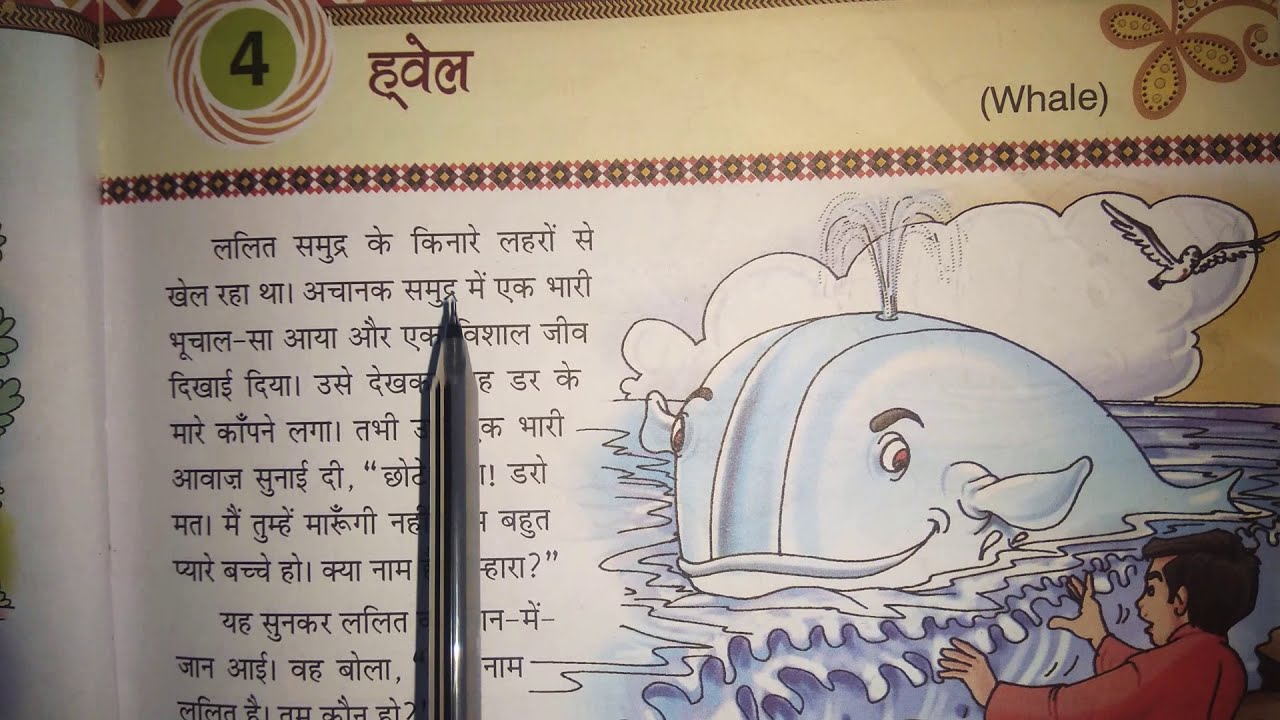 4
ह्वेल
(Whale)
ललित समुद्र के किनारे लहरों से
खेल रहा था। अचानक समुद्र में एक भारी
भूचाल-सा आया और एक विशाल जीव
दिखाई दिया। उसे देखकर डर के
मारे काँपने लगा। तभी भारी
आवाज़ सुनाई दी, “छोटे डरो
मत। मैं तुम्हें मारूँगी नहीं बहुत
प्यारे बच्चे हो। क्या नाम
यह सुनकर ललित
जान आई। वह बोला, नाम
ललित है। तुम कौन हो?